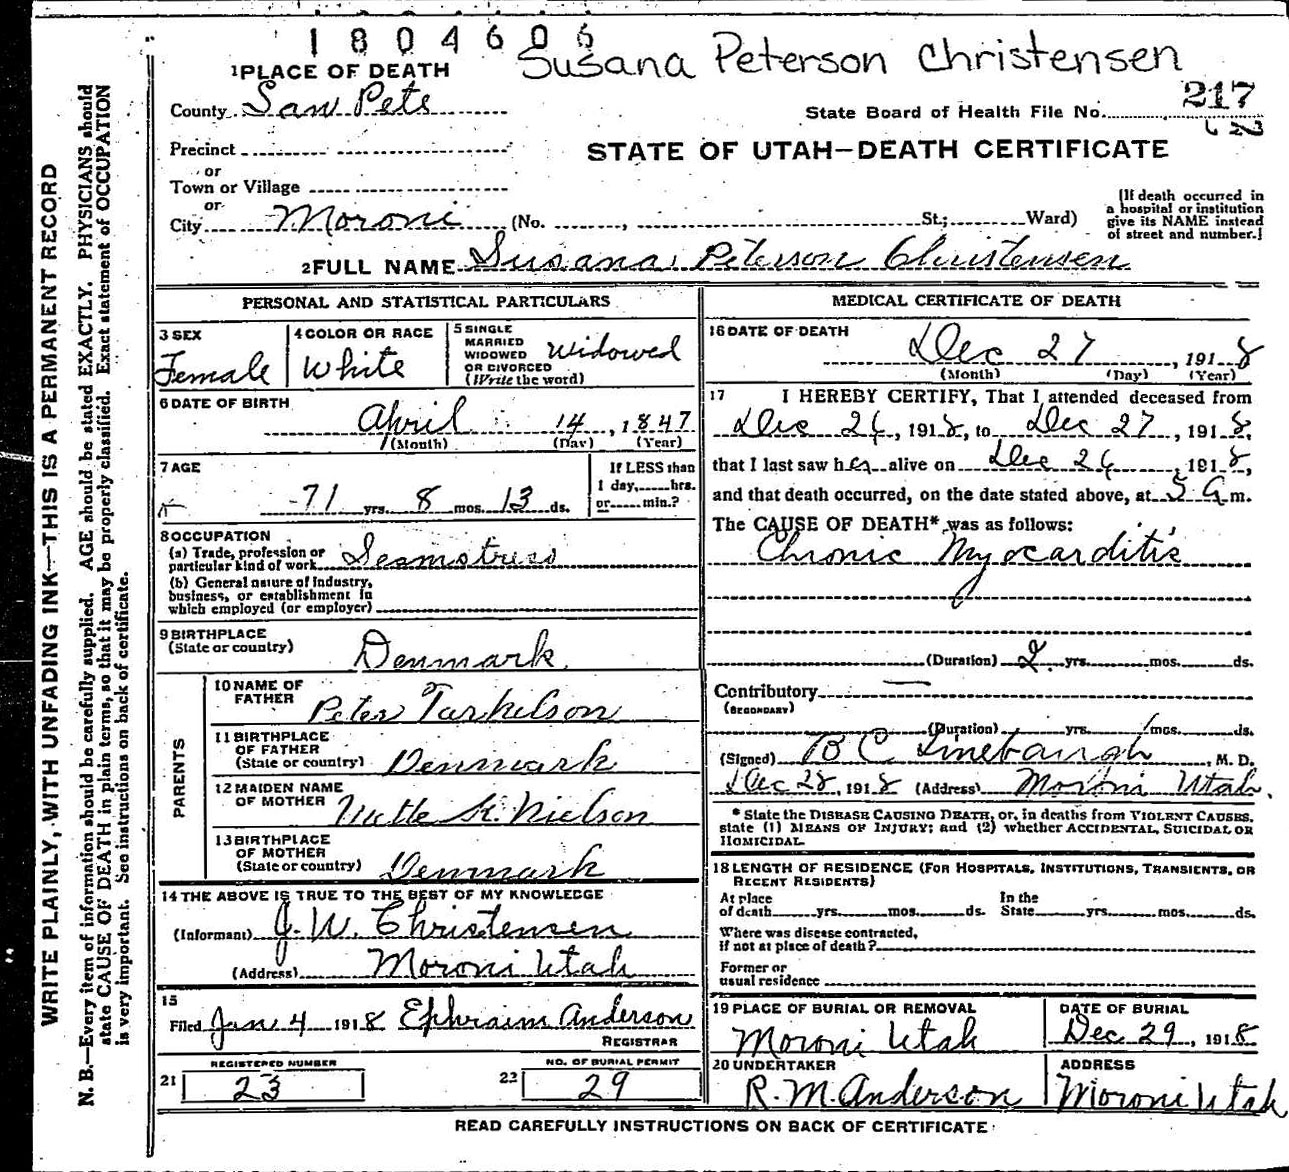 1804606
Susana Peterson Christensen
1 PLACE OF DEATH
County San Pete
State Board of Health File No. 217
52
Precinct
or
Town or Village
or
City Moroni (No. , St.; Ward)
STATE OF UTAH—DEATH CERTIFICATE
[If death occurred in
a hospital or institution
give its NAME instead
of street and number.]
2 FULL NAME Susana Peterson Christensen
PERSONAL AND STATISTICAL PARTICULARS
3 SEX
Female
4 COLOR OR RACE
White
5 SINGLE
MARRIED
WIDOWED
OR DIVORCED
(Write the word)
Widowed
6 DATE OF BIRTH
April 14, 1847
(Month) (Day) (Year)
7 AGE
71 yrs. 8 mos. 13 ds.
If LESS than
1 day, hrs.
or min.?
8 OCCUPATION
(a) Trade, profession or
particular kind of work Seamstress
(b) General nature of Industry,
business, or establishment in
which employed (or employer)
9 BIRTHPLACE
(State or country)
Denmark
PARENTS
10 NAME OF
FATHER
Peter Tarkelson
11 BIRTHPLACE
OF FATHER
(State or country) Denmark
12 MAIDEN NAME
OF MOTHER
K. Nielson
13 BIRTHPLACE
OF MOTHER
(State or country) Denmark
14 THE ABOVE IS TRUE TO THE BEST OF MY KNOWLEDGE
(Informant) J. W. Christensen
(Address) Moroni Utah
15
Filed Jan 4 1918 Ephraim Anderson
REGISTRAR
REGISTERED NUMBER
21 23
NO. OF BURIAL PERMIT
22 29
MEDICAL CERTIFICATE OF DEATH
16 DATE OF DEATH
Dec 27, 1918
(Month) (Day) (Year)
17 I HEREBY CERTIFY, That I attended deceased from
Dec 26, 1918, to Dec 27, 1918,
that I last saw her alive on Dec 26, 1918,
and that death occurred, on the date stated above, at 5 a m.
The CAUSE OF DEATH* was as follows:
Chronic Myocarditis
(Duration) 2 yrs. mos. ds.
Contributory
(SECONDARY)
(Duration) yrs. mos. ds.
(Signed) B C Linebaugh, M. D.
Dec 28, 1918 (Address) Moroni Utah.
* State the DISEASE CAUSING DEATH, or, in deaths from VIOLENT CAUSES,
state (1) MEANS OF INJURY; and (2) whether ACCIDENTAL, SUICIDAL OR
HOMICIDAL.
18 LENGTH OF RESIDENCE (FOR HOSPITALS, INSTITUTIONS, TRANSIENTS, OR
RECENT RESIDENTS)
At place
of death yrs. mos. ds.
In the
State yrs. mos. ds.
Where was disease contracted,
if not at place of death?
Former or
usual residence
19 PLACE OF BURIAL OR REMOVAL
Moroni Utah
DATE OF BURIAL
Dec 29, 1918
20 UNDERTAKER
R. M. Anderson
ADDRESS
Moroni Utah
READ CAREFULLY INSTRUCTIONS ON BACK OF CERTIFICATE
WRITE PLAINLY, WITH UNFADING INK—THIS IS A PERMANENT RECORD
N. B.—Every item of information should be carefully supplied. AGE should be stated EXACTLY. PHYSICIANS should
state CAUSE OF DEATH in plain terms, so that it may be properly classified. Exact statement of OCCUPATION
is very important. See instructions on back of certificate.